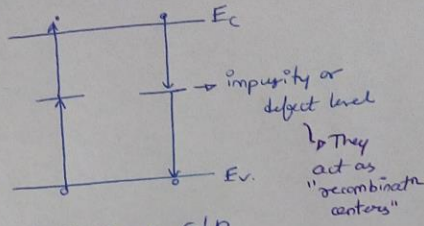 Ec
→ impurity or
defect level
↳ They
act as
"recombinatn
centers"
Ev.